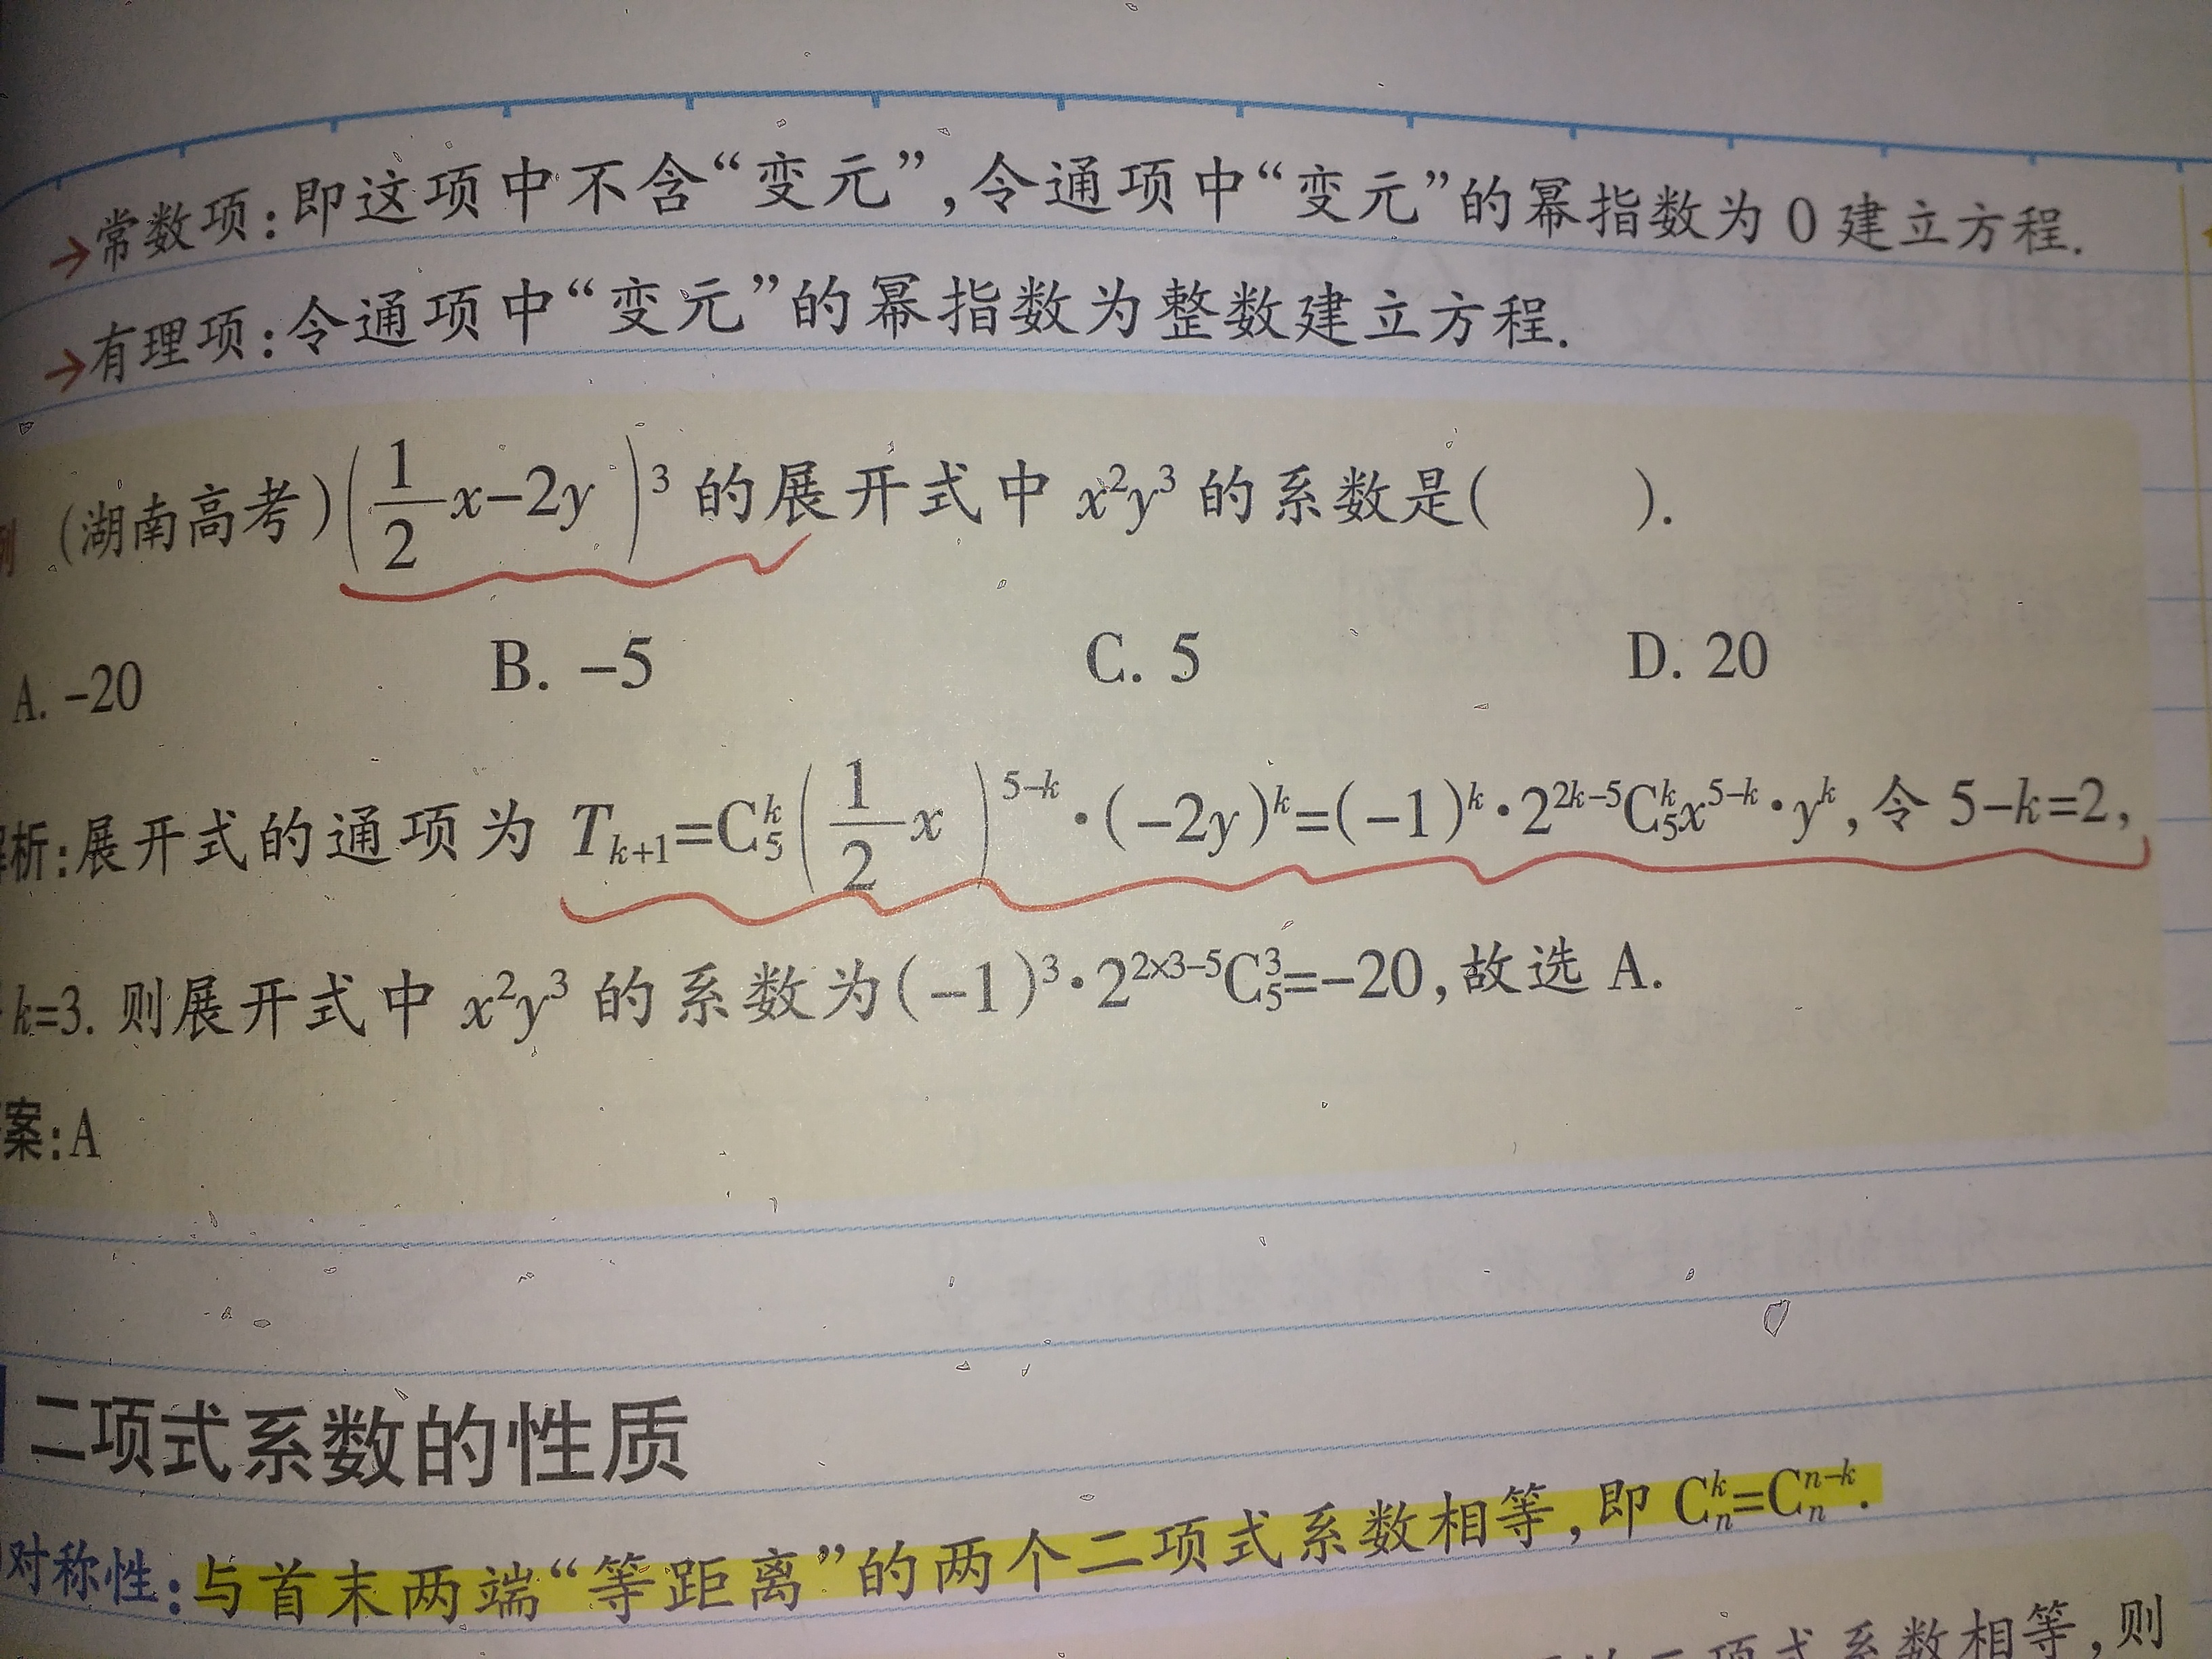 →常数项:即这项中不含“变元”,令通项中“变元”的幂指数为 0 建立方程.
→有理项:令通项中“变元”的幂指数为整数建立方程.
例 (湖南高考)(1/2 x-2y)³ 的展开式中 x²y³ 的系数是(  ).
A. -20 B. -5 C. 5 D. 20
解析:展开式的通项为 Tₖ₊₁=C₅ᵏ(1/2 x)⁵⁻ᵏ·(-2y)ᵏ=(-1)ᵏ·2²ᵏ⁻⁵C₅ᵏx⁵⁻ᵏ·yᵏ,令 5-k=2,
k=3. 则展开式中 x²y³ 的系数为(-1)³·2²ˣ³⁻⁵C₅³=-20,故选 A.
案:A
二项式系数的性质
对称性:与首末两端“等距离”的两个二项式系数相等,即 Cₙᵏ=Cₙⁿ⁻ᵏ.
二项式系数相等,则